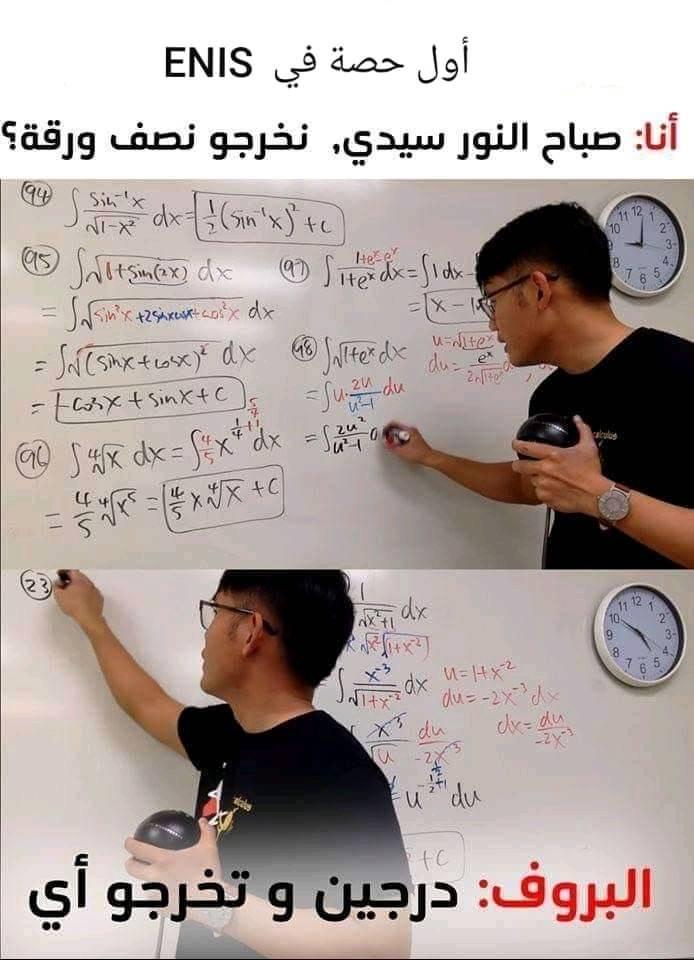 أول حصة في ENIS
أنا: صباح النور سيدي, نخرجو نصف ورقة؟
94 ∫ sin⁻¹x / √(1-x²) dx = ½ (sin⁻¹x)² + C
95 ∫ √(1+sin(2x)) dx
= ∫ √(sin²x + 2sinxcosx + cos²x) dx
= ∫ √(sinx + cosx)² dx
= -cosx + sinx + C
96 ∫ ⁴√x dx = ∫ 4/5 x^(1/4+1) 5/4 dx
= 4/5 ⁴√x⁵ = 4/5 x ⁴√x + C
97 ∫ 1+eˣ-eˣ / 1+eˣ dx = ∫ 1 dx -
= x - 1
98 ∫ √(1+eˣ) dx
u = √(1+eˣ)
du = eˣ / 2√(1+eˣ)
= ∫ u · 2u / u²-1 du
= ∫ 2u² / u²-1
calculus
11 12 1
10 2
9 3
8 7 6 5 4
23
1 / √(x²+1) dx
√x² √(1+x⁻²)
∫ x⁻³ / √(1+x⁻²) dx
u = 1+x⁻²
du = -2x⁻³ dx
dx = du / -2x⁻³
x⁻³ / √u du / -2x⁻³
u^(-½+1) du
+C
calculus
11 12 1
10 2
9 3
8 7 6 5 4
البروف: درجين و تخرجو أي